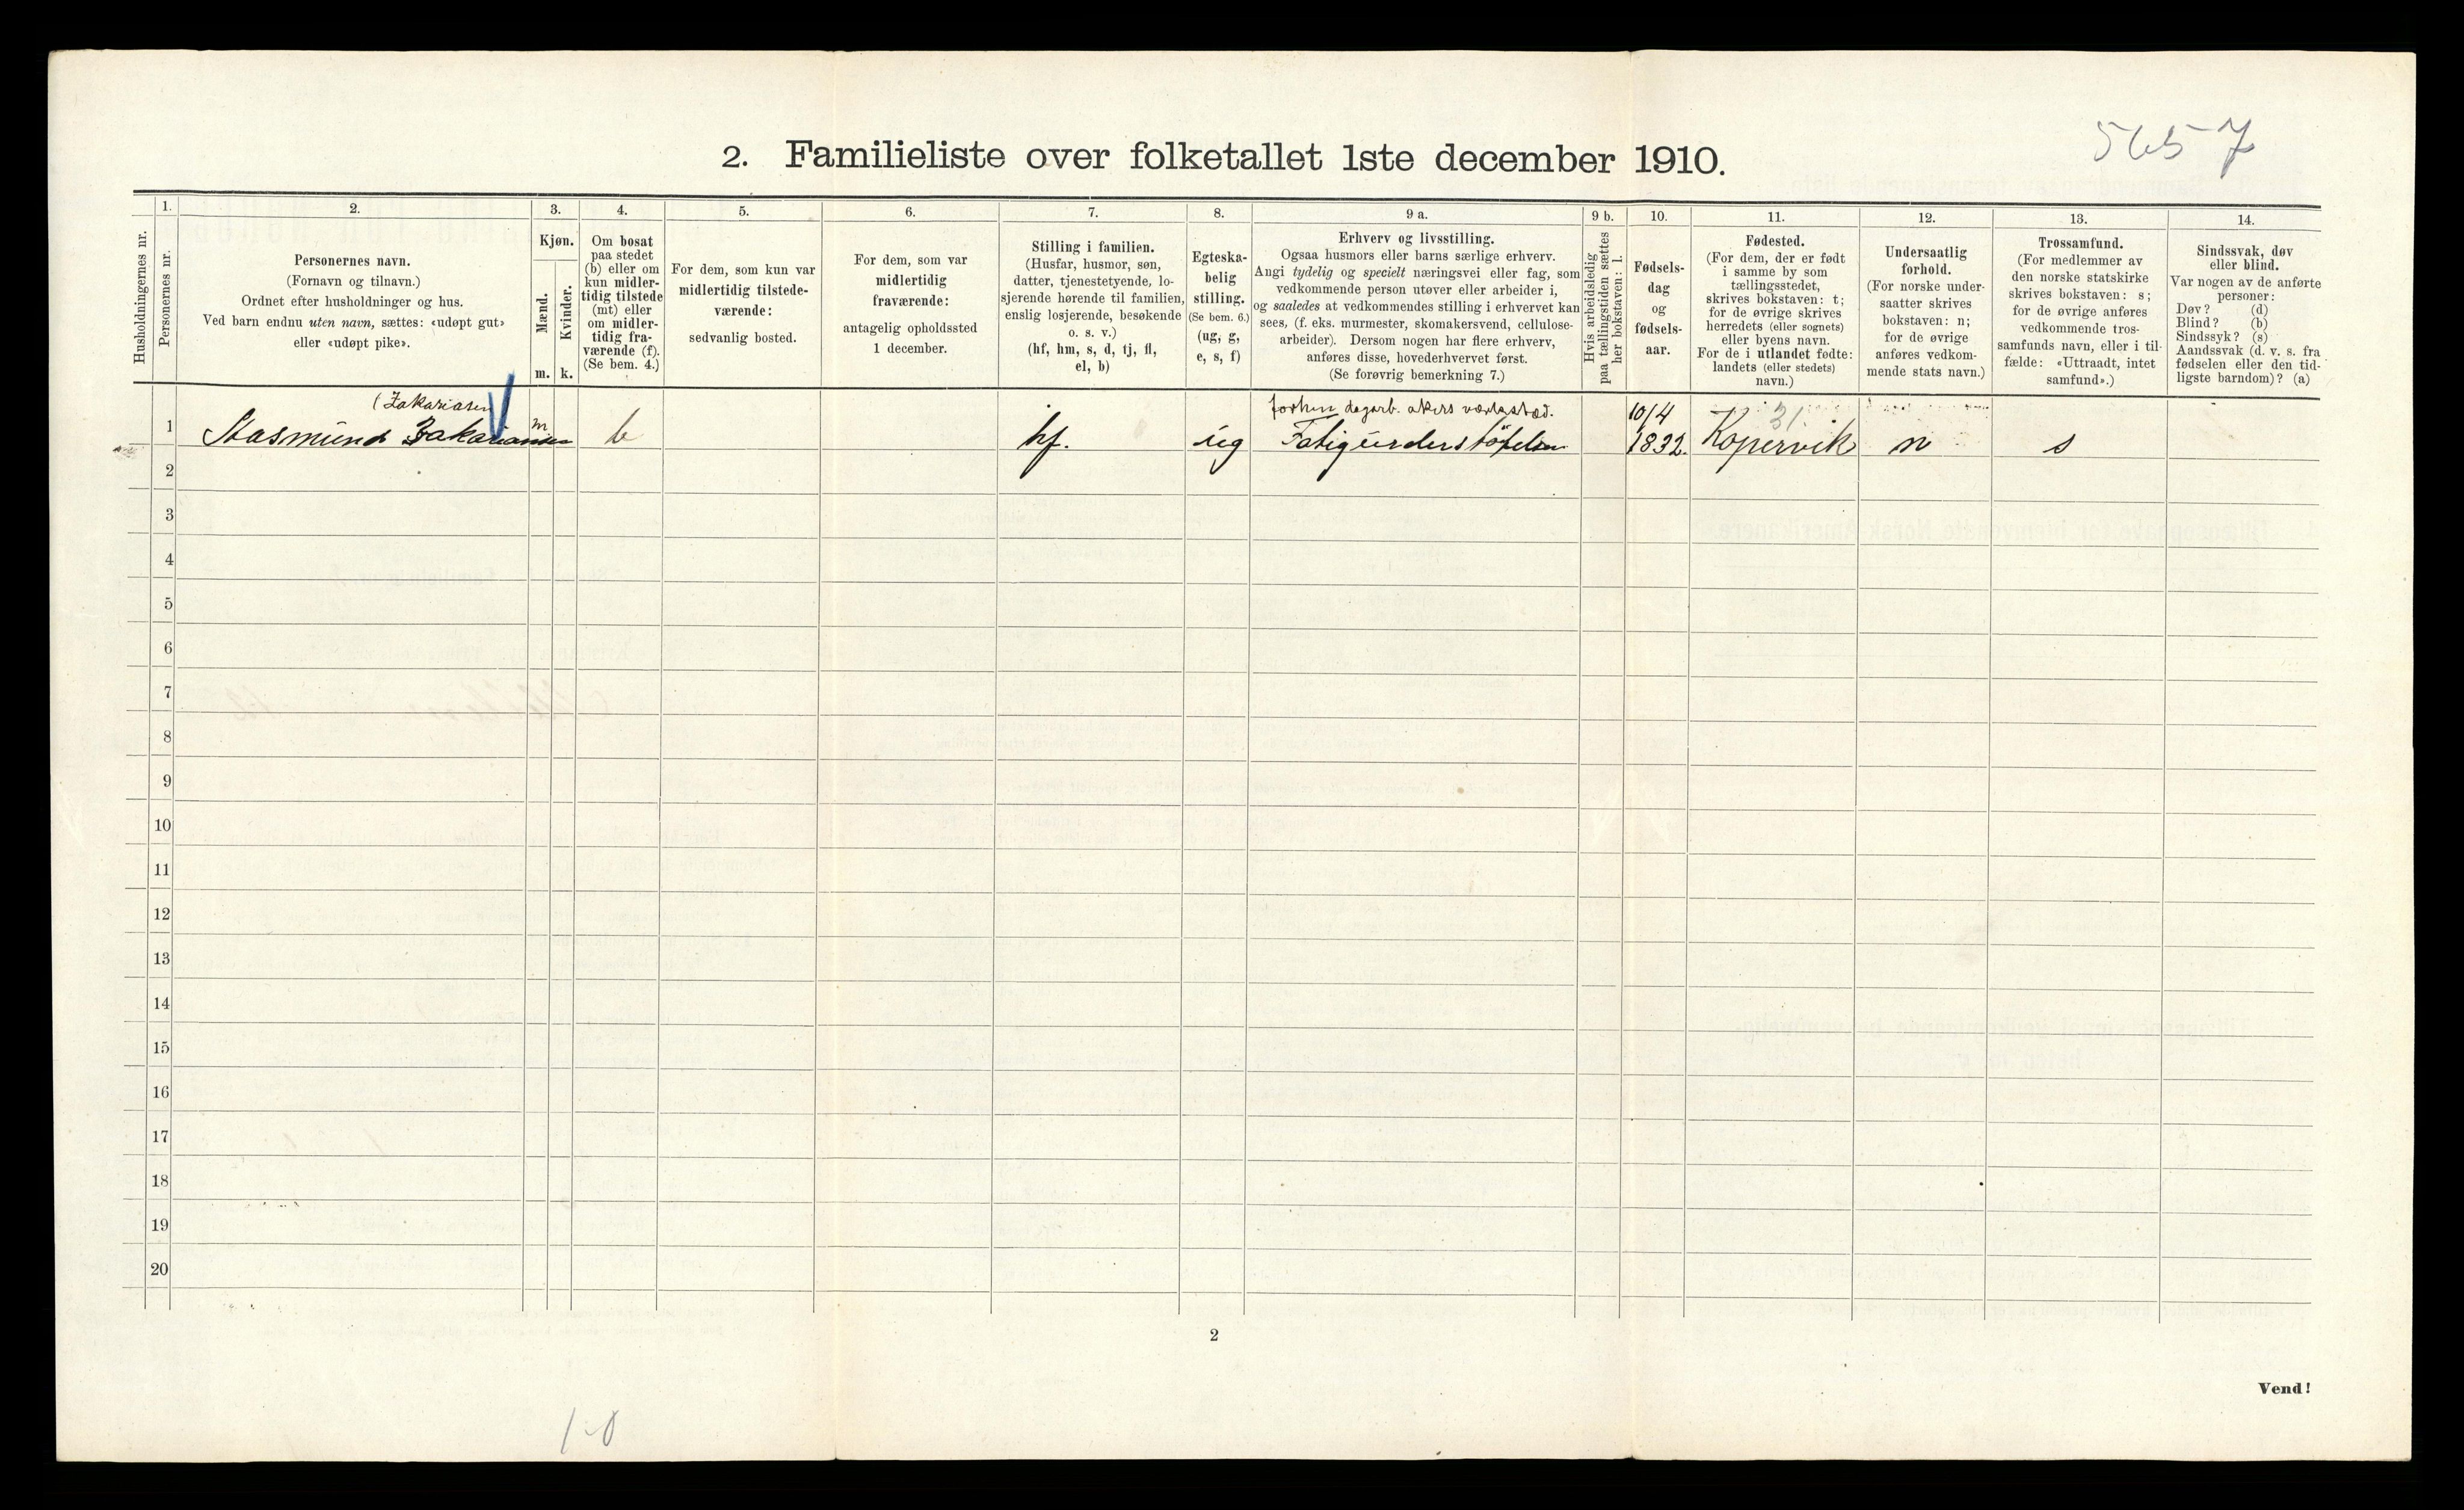 5657
2. Familieliste over folketallet 1ste december 1910.
Husholdningernes nr.
1.
Personernes nr.
2.
Personernes navn.
(Fornavn og tilnavn.)
Ordnet efter husholdninger og hus.
Ved barn endnu uten navn, sættes: «udøpt gut»
eller «udøpt pike».
3.
Kjøn.
Mænd.
Kvinder.
m. k.
4.
Om bosat
paa stedet
(b) eller om
kun midler-
tidig tilstede
(mt) eller
om midler-
tidig fra-
værende (f).
(Se bem. 4.)
5.
For dem, som kun var
midlertidig tilstede-
værende:
sedvanlig bosted.
6.
For dem, som var
midlertidig
fraværende:
antagelig opholdssted
1 december.
7.
Stilling i familien.
(Husfar, husmor, søn,
datter, tjenestetyende, lo-
sjerende hørende til familien,
enslig losjerende, besøkende
o. s. v.)
(hf, hm, s, d, tj, fl,
el, b)
8.
Egteska-
belig
stilling.
(Se bem. 6.)
(ug, g,
e, s, f)
9 a.
Erhverv og livsstilling.
Ogsaa husmors eller barns særlige erhverv.
Angi tydelig og specielt næringsvei eller fag, som
vedkommende person utøver eller arbeider i,
og saaledes at vedkommendes stilling i erhvervet kan
sees, (f. eks. murmester, skomakersvend, cellulose-
arbeider). Dersom nogen har flere erhverv,
anføres disse, hovederhvervet først.
(Se forøvrig bemerkning 7.)
9 b.
Hvis arbeidsledig
paa tællingstiden sættes
her bokstaven: l.
10.
Fødsels-
dag
og
fødsels-
aar.
11.
Fødested.
(For dem, der er født
i samme by som
tællingsstedet,
skrives bokstaven: t;
for de øvrige skrives
herredets (eller sognets)
eller byens navn.
For de i utlandet fødte:
landets (eller stedets)
navn.)
12.
Undersaatlig
forhold.
(For norske under-
saatter skrives
bokstaven: n;
for de øvrige
anføres vedkom-
mende stats navn.)
13.
Trossamfund.
(For medlemmer av
den norske statskirke
skrives bokstaven: s;
for de øvrige anføres
vedkommende tros-
samfunds navn, eller i til-
fælde: «Uttraadt, intet
samfund».)
14.
Sindssvak, døv
eller blind.
Var nogen av de anførte
personer:
Døv? (d)
Blind? (b)
Sindssyk? (s)
Aandssvak (d. v. s. fra
fødselen eller den tid-
ligste barndom)? (a)
(Zakariasen forhen dagarb. akers 10/4 31
1 Zakariassen m b hf. ug Fatigunderstøtelse 1832. Kopervik n s
2
3
4
5
6
7
8
9
10
11
12
13
14
15
16
17
18
19
20
2
Vend!